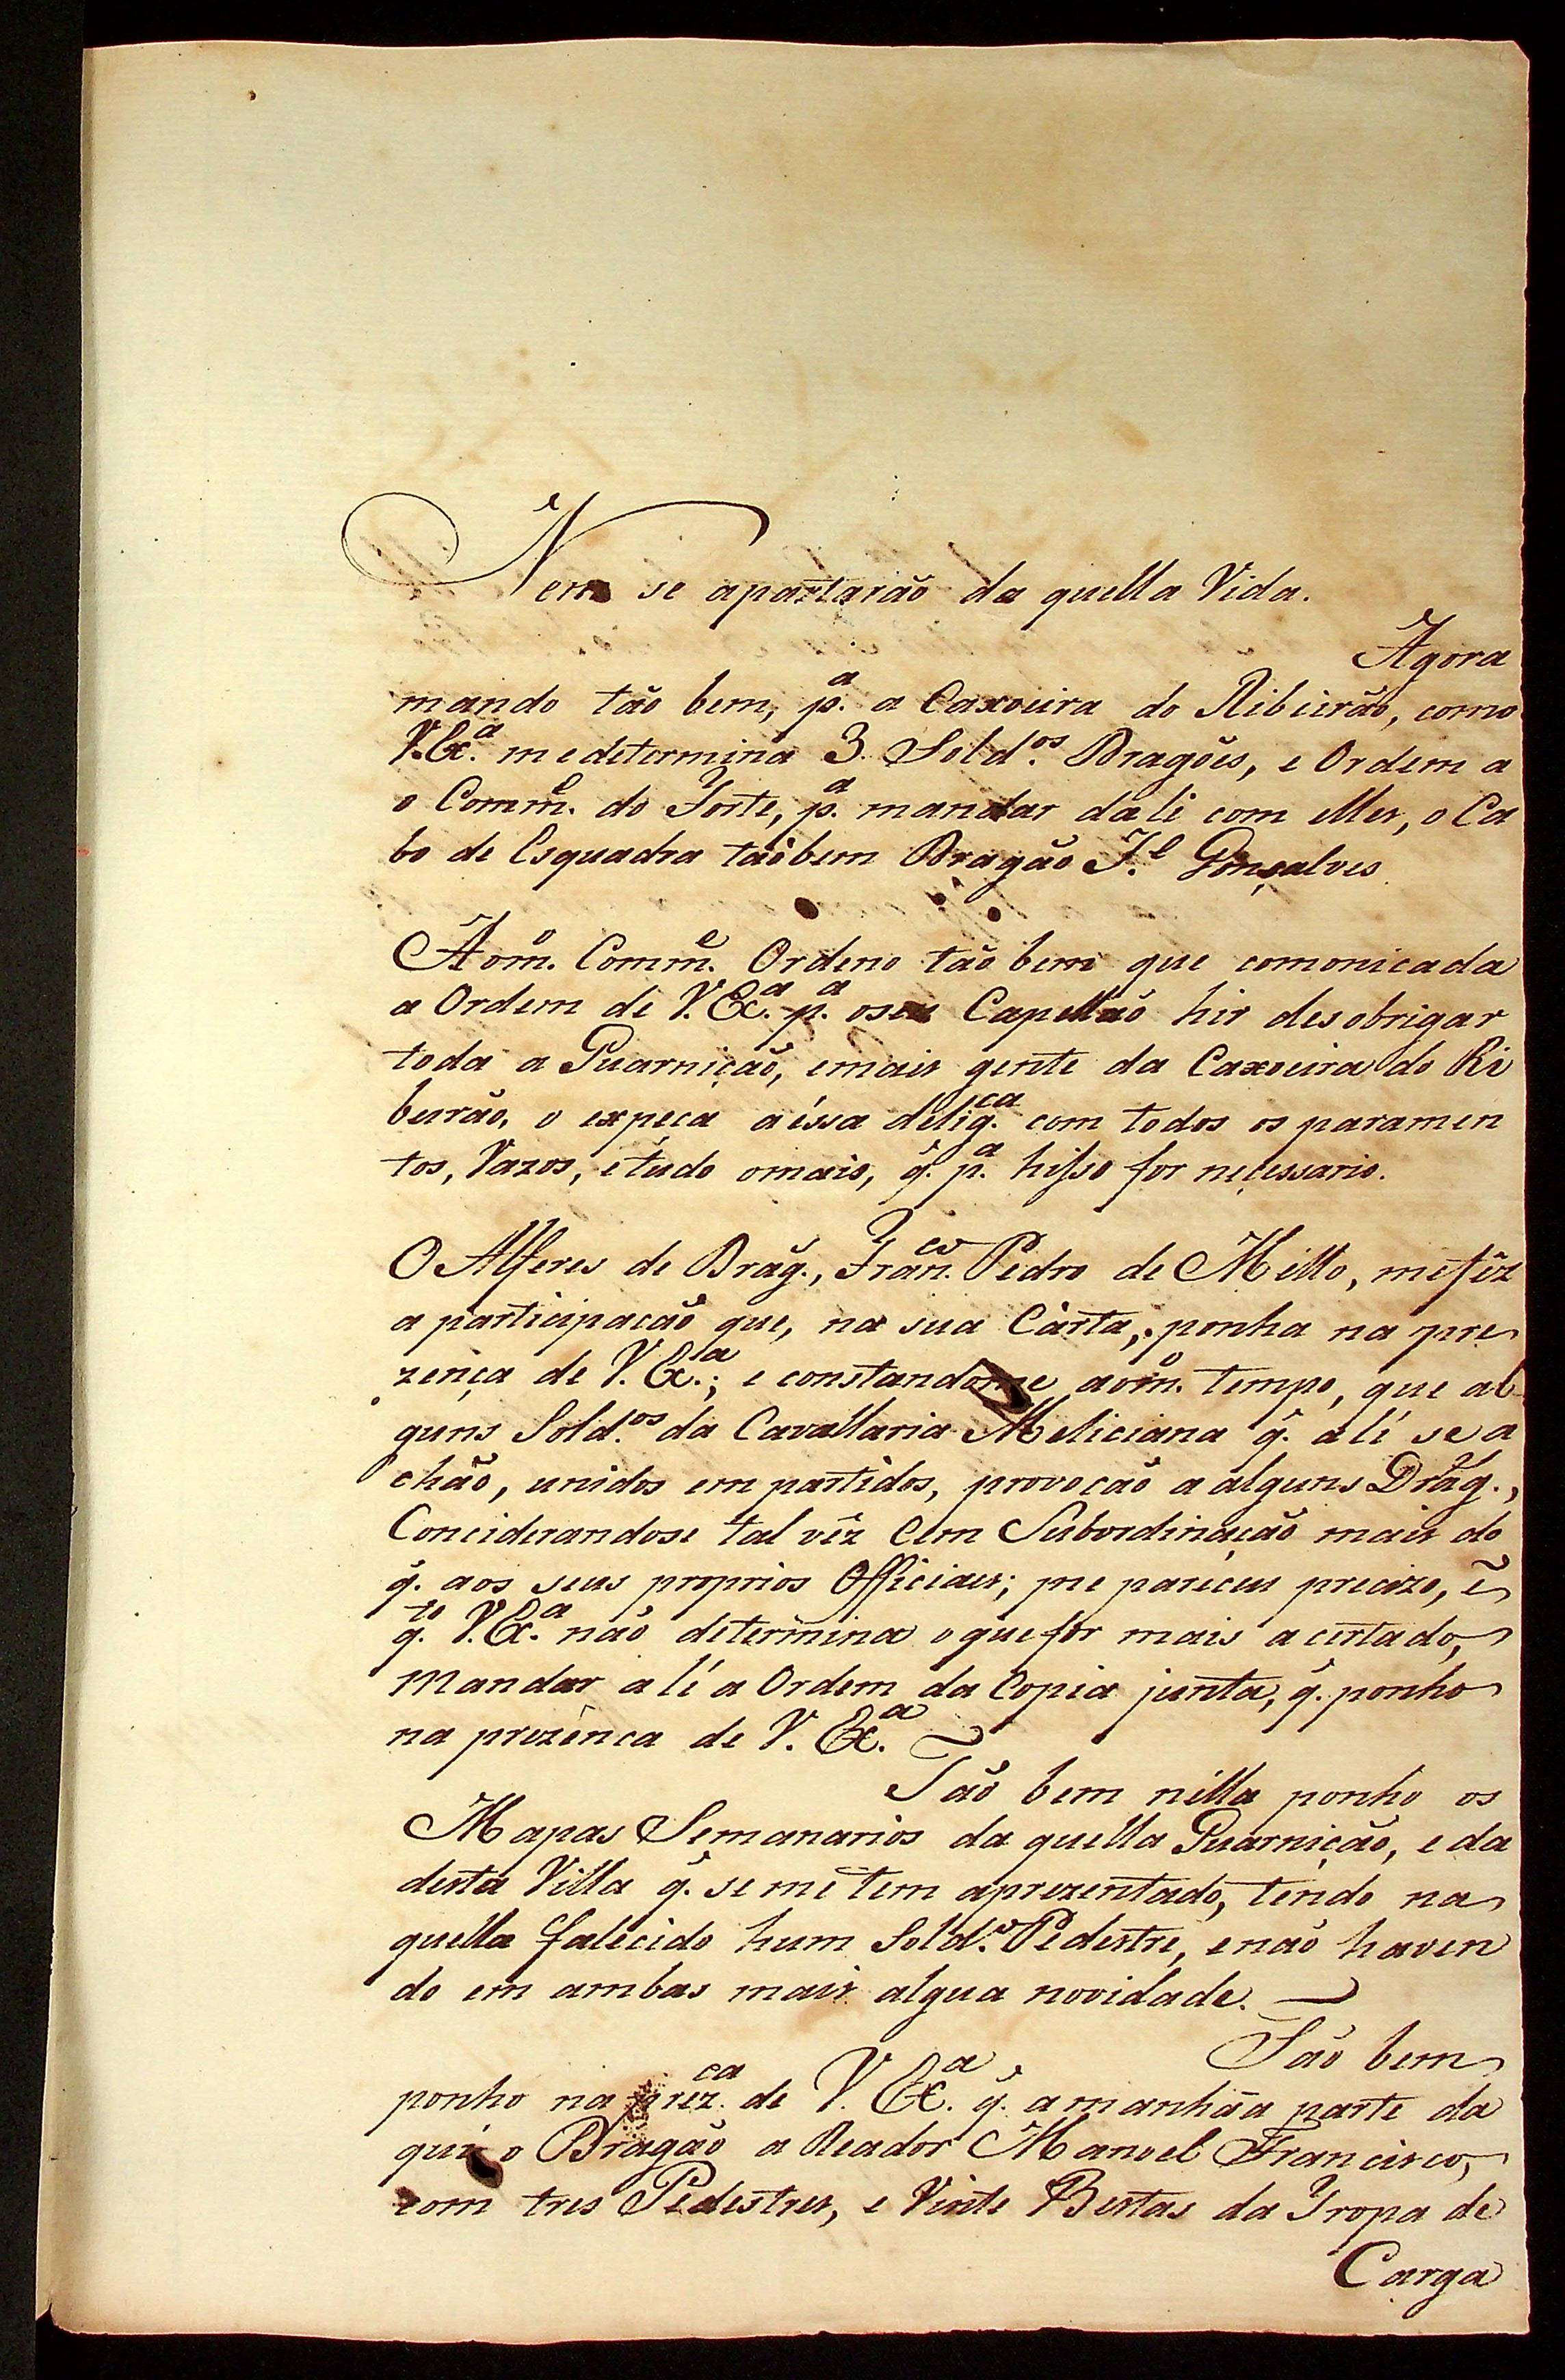 Nem se apartarão da quella Vida.
Agora
mando tão bem, p.ª a Caxoeira do Ribeirão, como
V. Ex.ª me determina 3. Sold.os Dragões, e Ordem a
o Comm.e do Forte, p.ª mandar dali com elles, o Ca
bo de Esquadra taobem Dragão J.l Gonçalves
Ao m.o Comm.e Ordeno tão bem que comonicada
a Ordem de V. Ex.ª p.ª oseu Capellão hir desobrigar
toda a Guarnição, emais gente da Caxoeira do Ri
beirão, o expeça aéssa delig.ca com todos os paramen
tos, Vazos, etudo omais, q̃. p.ª hisso for neçessario.
O Alferes de Drag̃., Fran.co Pedro de Mello, mefêz
a participação que, na sua Carta, ponha na pre
zença de V. Ex.ª; e constandome aom.o tempo, que al
guns Sold.os da Cavallaria Meliciana q̃. ali se a
chão, unidos em partidos, provocão a alguns Drag̃.,
Conciderandose tal vêz Cem Subordinação mais do
q̃. aos seus proprios Officiaes; me pareceu precizo, ẽ
q.to V. Ex.ª não determina oquefor mais acertado,
Mandar alí a Ordem da Copia junta, q̃. ponho
na prezênca de V. Ex.ª
Tão bem nella ponho os
Mapas Semanarios da quella Guarnição, e da
desta Villa q̃. se me tem aprezentado, tendo na
quella falecido hum Sold.o Pedestre, enão haven
do em ambas mais algua novidade.
Tão bem
ponho na prez.ca de V. Ex.ª q̃. amanhãa parte da
qui o Dragão a Reador Manoel Francisco,
com tres Pedestres, e Vinte Bestas da Tropa de
Carga